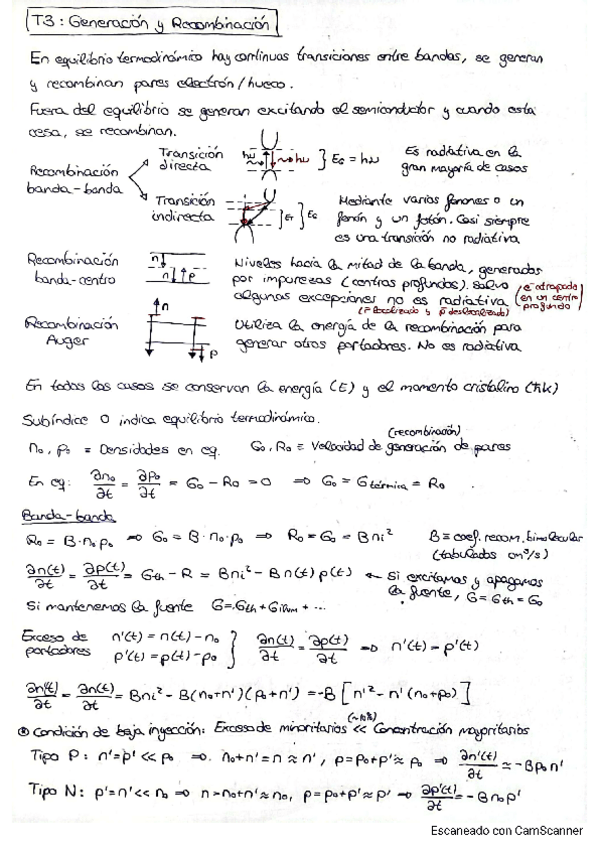 T3: Generación y Recombinación
En equilibrio termodinámico hay continuas transiciones entre bandas, se generan
y recombinan pares electrón/hueco.
Fuera del equilibrio se generan excitando el semiconductor y cuando esta
cesa, se recombinan.
Recombinación banda-banda
Transición directa
hν
hν
} E_G = hν
Es radiativa en la
gran mayoría de casos
Transición indirecta
Mediante varios fonones o un
fonón y un fotón. Casi siempre
es una transición no radiativa
Recombinación banda-centro
n↓
n↓ ↑p
Niveles hacia la mitad de la banda, generados
por impurezas (centros profundos). Salvo
algunas excepciones no es radiativa
(e⁻ atrapado en un centro profundo)
Recombinación Auger
n
p
Utiliza la energía de la recombinación para
generar otros portadores. No es radiativa
En todos los casos se conservan la energía (E) y el momento cristalino (ħk)
Subíndice 0 indica equilibrio termodinámico.
n₀, p₀ ≡ Densidades en eq. G₀, R₀ ≡ Velocidad de generación de pares
(recombinación)
En eq: ∂n₀/∂t = ∂p₀/∂t = G₀ - R₀ = 0 ⇒ G₀ = G térmica = R₀
Banda-banda
R₀ = B·n₀p₀ ⇒ G₀ = B·n₀·p₀ ⇒ R₀ = G₀ = Bni²
B ≡ coef. recom. bimolecular
(tabulados cm³/s)
∂n(t)/∂t = ∂p(t)/∂t = Gth - R = Bni² - Bn(t)p(t) ← Si excitamos y apagamos
la fuente, G = Gth = G₀
Si mantenemos la fuente G = Gth + Gilum + ...
Exceso de portadores
n'(t) = n(t) - n₀
p'(t) = p(t) - p₀
} ∂n(t)/∂t = ∂p(t)/∂t ⇒ n'(t) = p'(t)
∂n'(t)/∂t = ∂n(t)/∂t = Bni² - B(n₀+n')(p₀+n') = -B[n'² - n'(n₀+p₀)]
⊛ Condición de baja inyección: Exceso de minoritarios << Concentración mayoritarios
(~10%)
Tipo P: n'=p' << p₀ ⇒ n₀+n' = n ≈ n', p = p₀+p' ≈ p₀ ⇒ ∂n'(t)/∂t ≈ -Bp₀n'
Tipo N: p'=n' << n₀ ⇒ n = n₀+n' ≈ n₀, p = p₀+p' ≈ p' ⇒ ∂p'(t)/∂t = -Bn₀p'
Escaneado con CamScanner